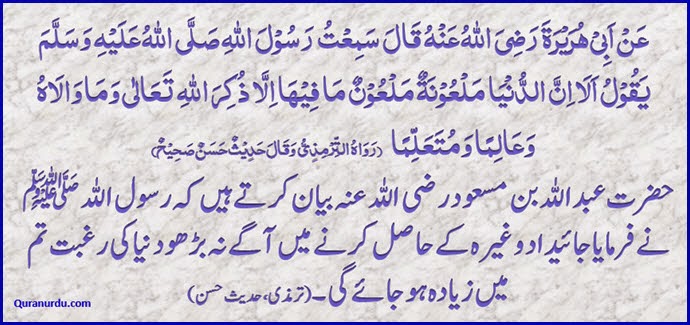 عَنْ اَبِیْ هُرَیْرَةَ رَضِیَ اللهُ عَنْهُ قَالَ سَمِعْتُ رَسُوْلَ اللهِ صَلَّی اللهُ عَلَیْهِ وَسَلَّمَ
یَقُوْلُ اَلَا اِنَّ الدُّنْیَا مَلْعُوْنَةٌ مَلْعُوْنٌ مَا فِیْهَا اِلَّا ذِکْرَ اللهِ تَعَالٰی وَمَا وَالَاهُ
وَعَالِمًا وَمُتَعَلِّمًا (رَوَاهُ التِّرْمِذِیُّ وَقَالَ حَدِیْثٌ حَسَنٌ صَحِیْحٌ)
حضرت عبد اللہ بن مسعود رضی اللہ عنہ بیان کرتے ہیں کہ رسول اللہ ﷺ
نے فرمایا جائیداد وغیرہ کے حاصل کرنے میں آگے نہ بڑھو دنیا کی رغبت تم
میں زیادہ ہو جائے گی۔ (ترمذی، حدیث حسن)
Quranurdu.com